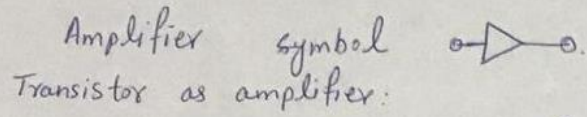 Amplifier symbol
Transistor as amplifier: